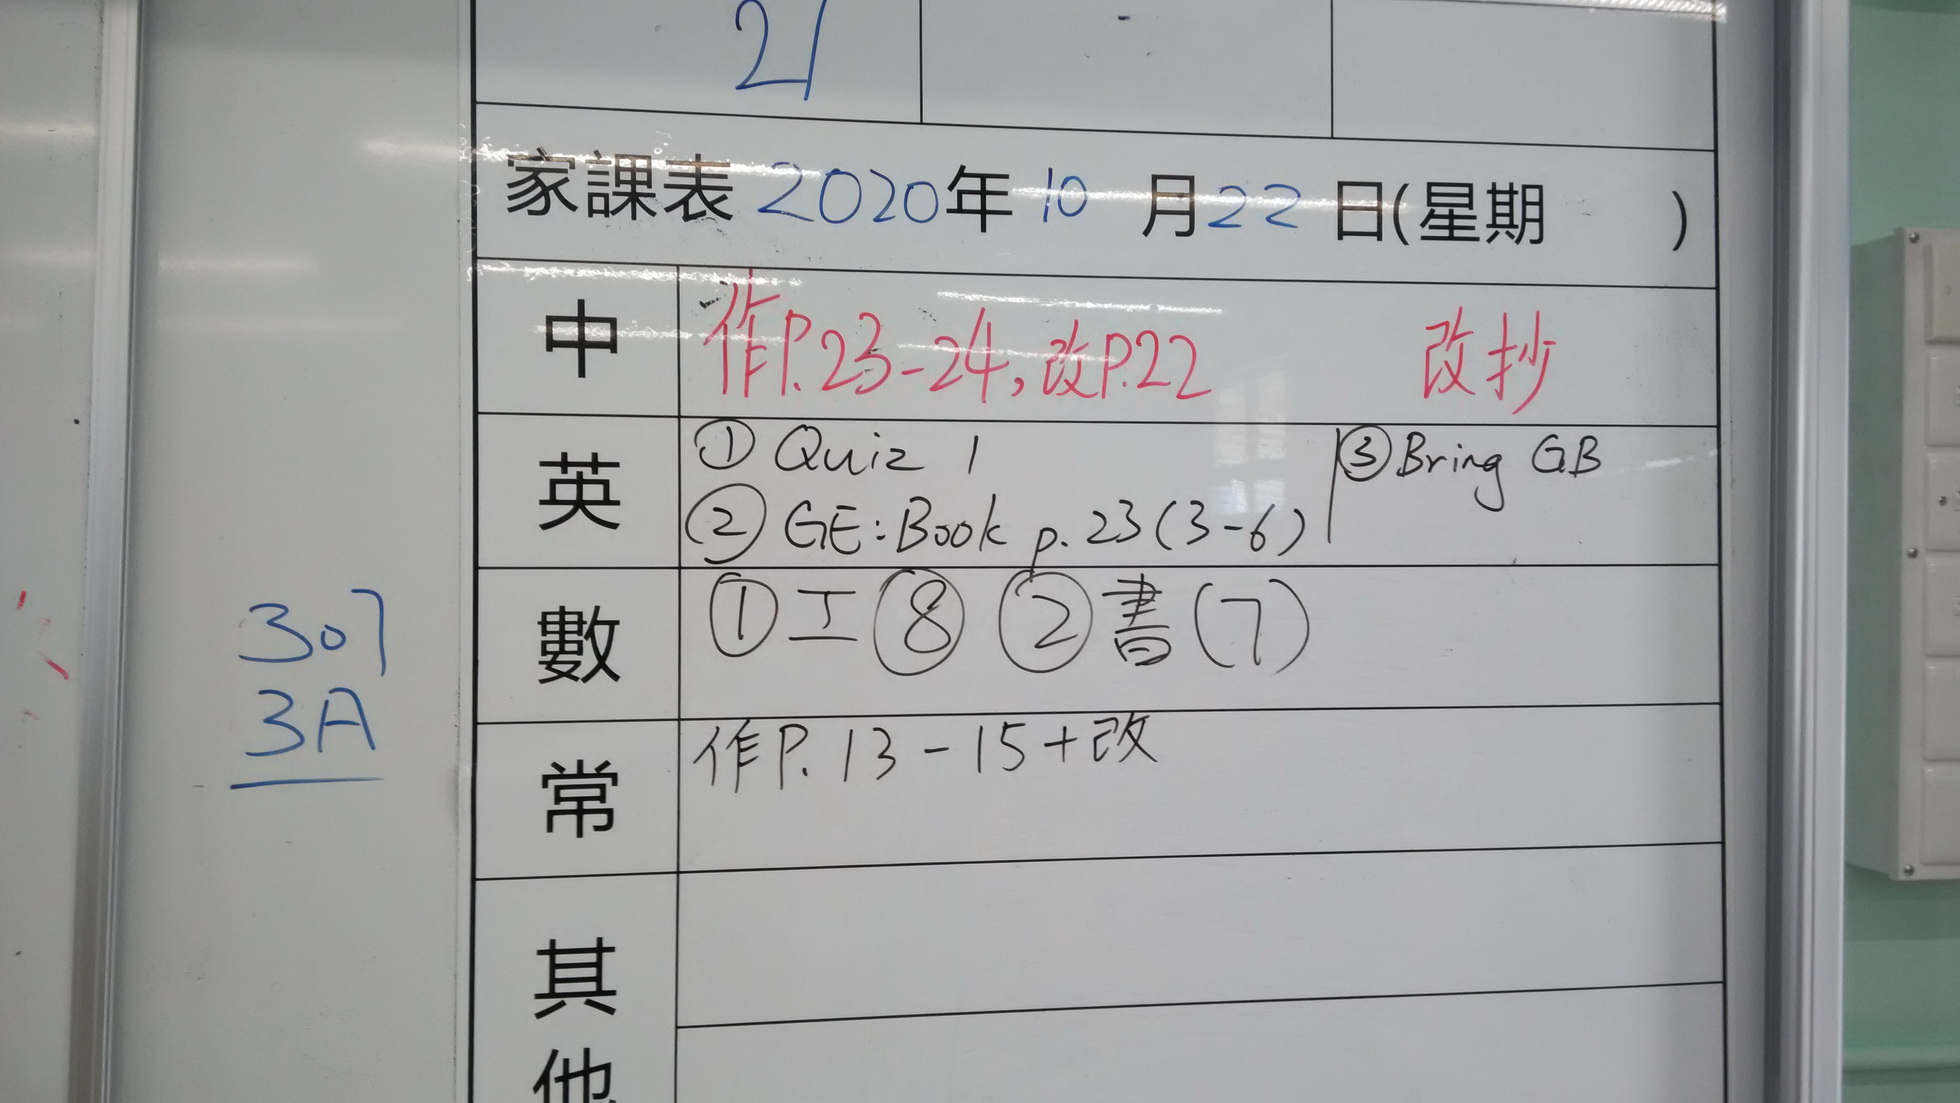 21
家課表 2020年 10 月 22 日(星期 )
中 作P.23-24,改P.22 改抄
英 ① Quiz 1 ③ Bring GB
② GE: Book p. 23 (3-6)
數 ① 工 ⑧ ② 書 (7)
常 作P. 13-15+改
其他
307
3A